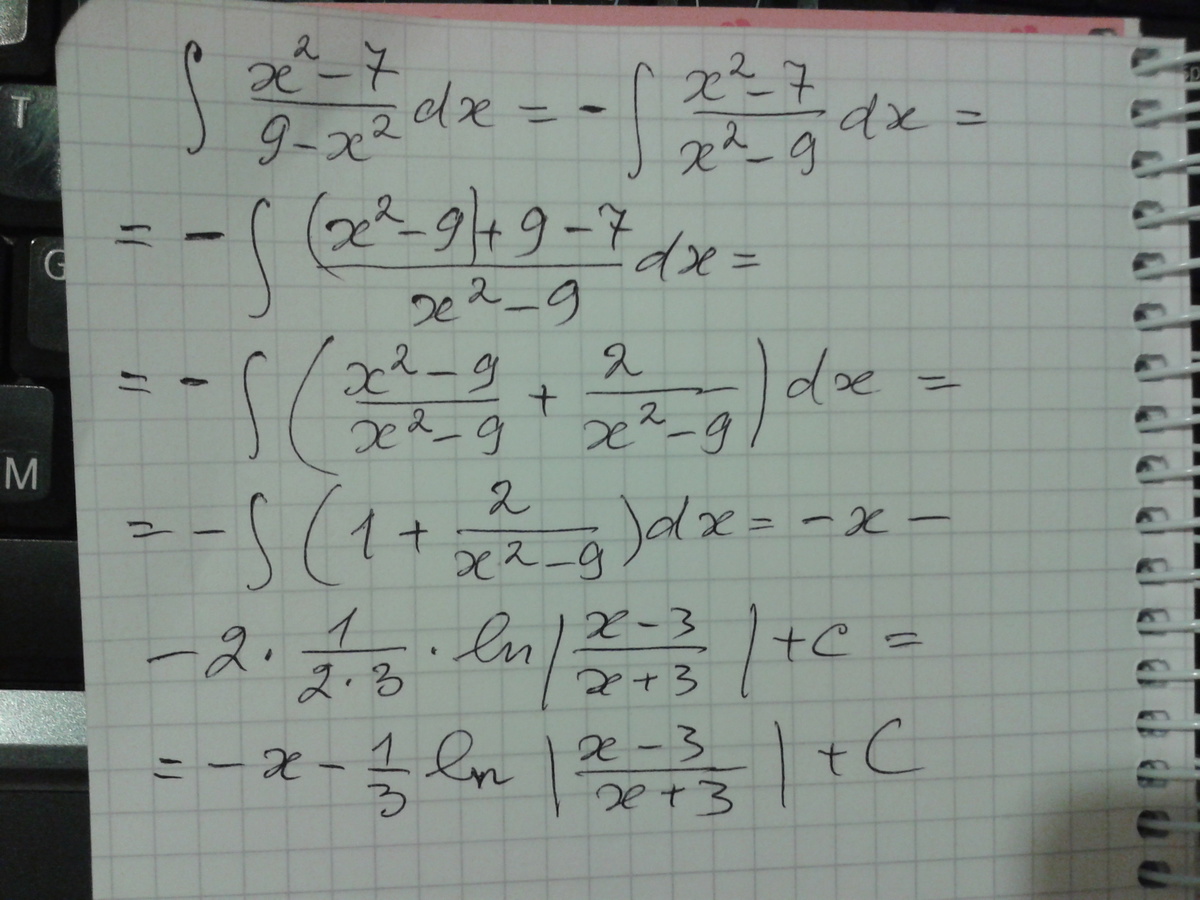 ∫ (x² - 7)/(9 - x²) dx = - ∫ (x² - 7)/(x² - 9) dx =
= - ∫ ((x² - 9) + 9 - 7)/(x² - 9) dx =
= - ∫ ((x² - 9)/(x² - 9) + 2/(x² - 9)) dx =
= - ∫ (1 + 2/(x² - 9)) dx = - x -
- 2 · 1/(2 · 3) · ln |(x - 3)/(x + 3)| + C =
= - x - 1/3 ln |(x - 3)/(x + 3)| + C
T
G
M